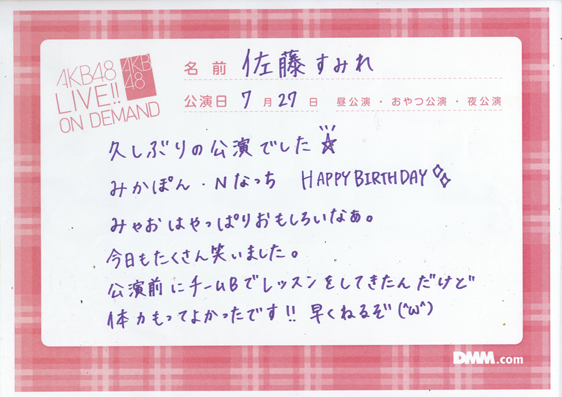 AKB48
LIVE!!
ON DEMAND
AKB
48
名前 佐藤すみれ
公演日 7月27日 昼公演・おやつ公演・夜公演
久しぶりの公演でした☆
みかぽん・Nなっち HAPPY BIRTHDAY
みゃおはやっぱりおもしろいなぁ。
今日もたくさん笑いました。
公演前にチームBでレッスンをしてきたんだけど
体力もってよかったです!! 早くねるぞ(^ω^)
DMM.com